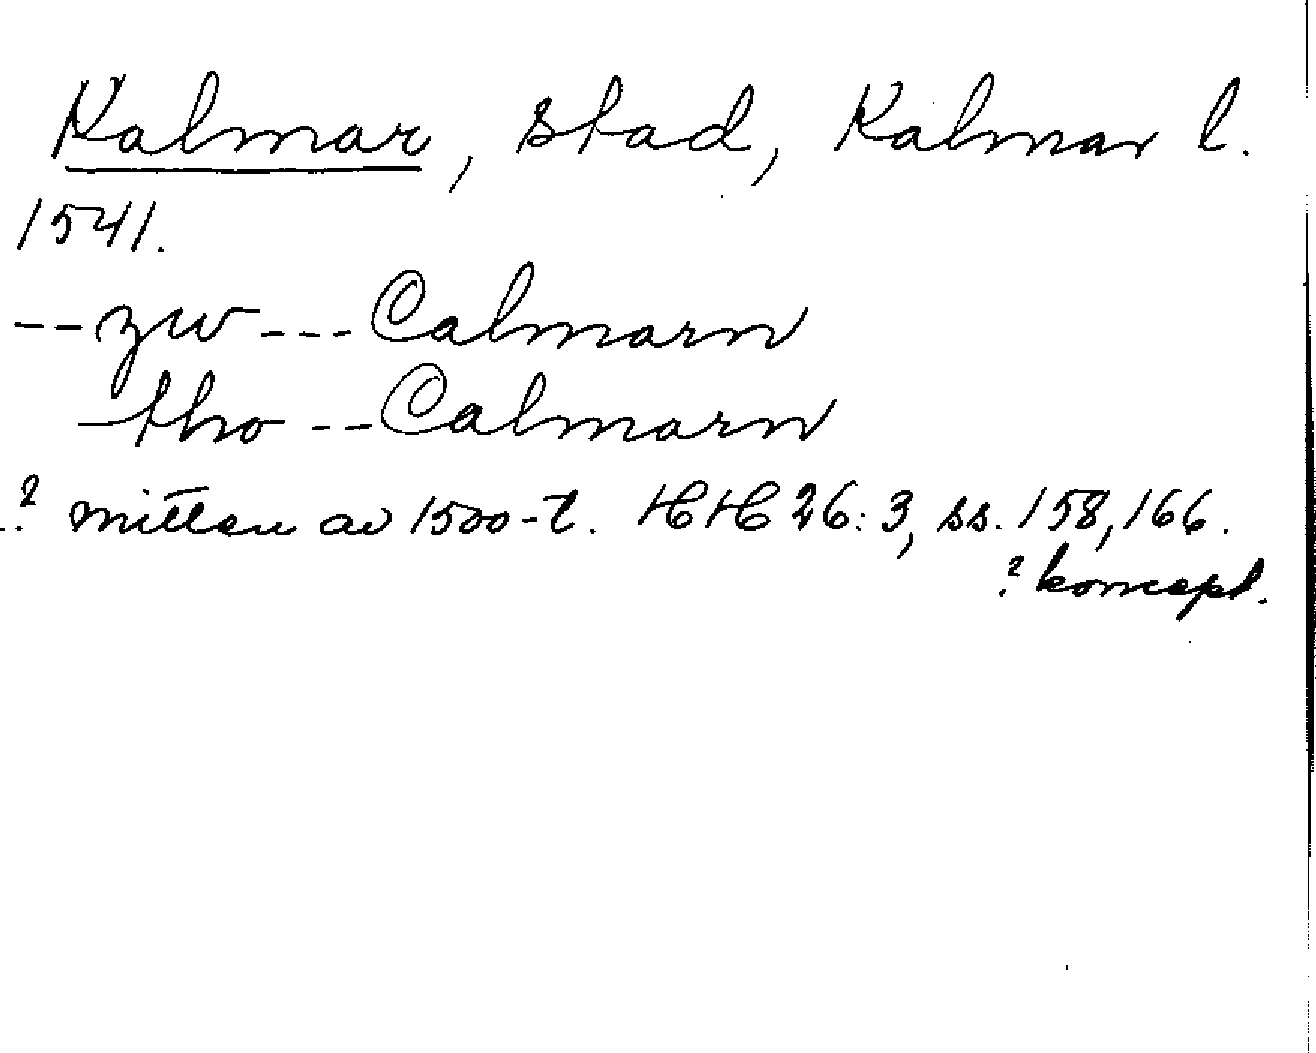 Kalmar, stad, Kalmar l.
1541.
-- zw --- Calmarn
- tho -- Calmarn
? mitten av 1500-t. HH 26:3, ss. 158, 166.
? koncept.